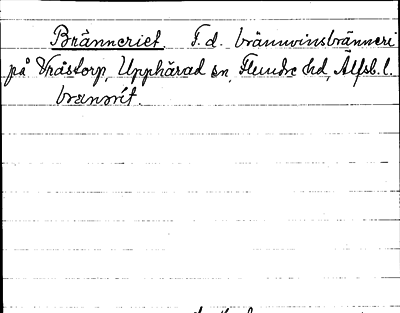 Bränneriet. F. d. brännvinsbränneri
på Vråstorp, Upphärad sn, Flundre hd, Älfsb. l.
brænərít.